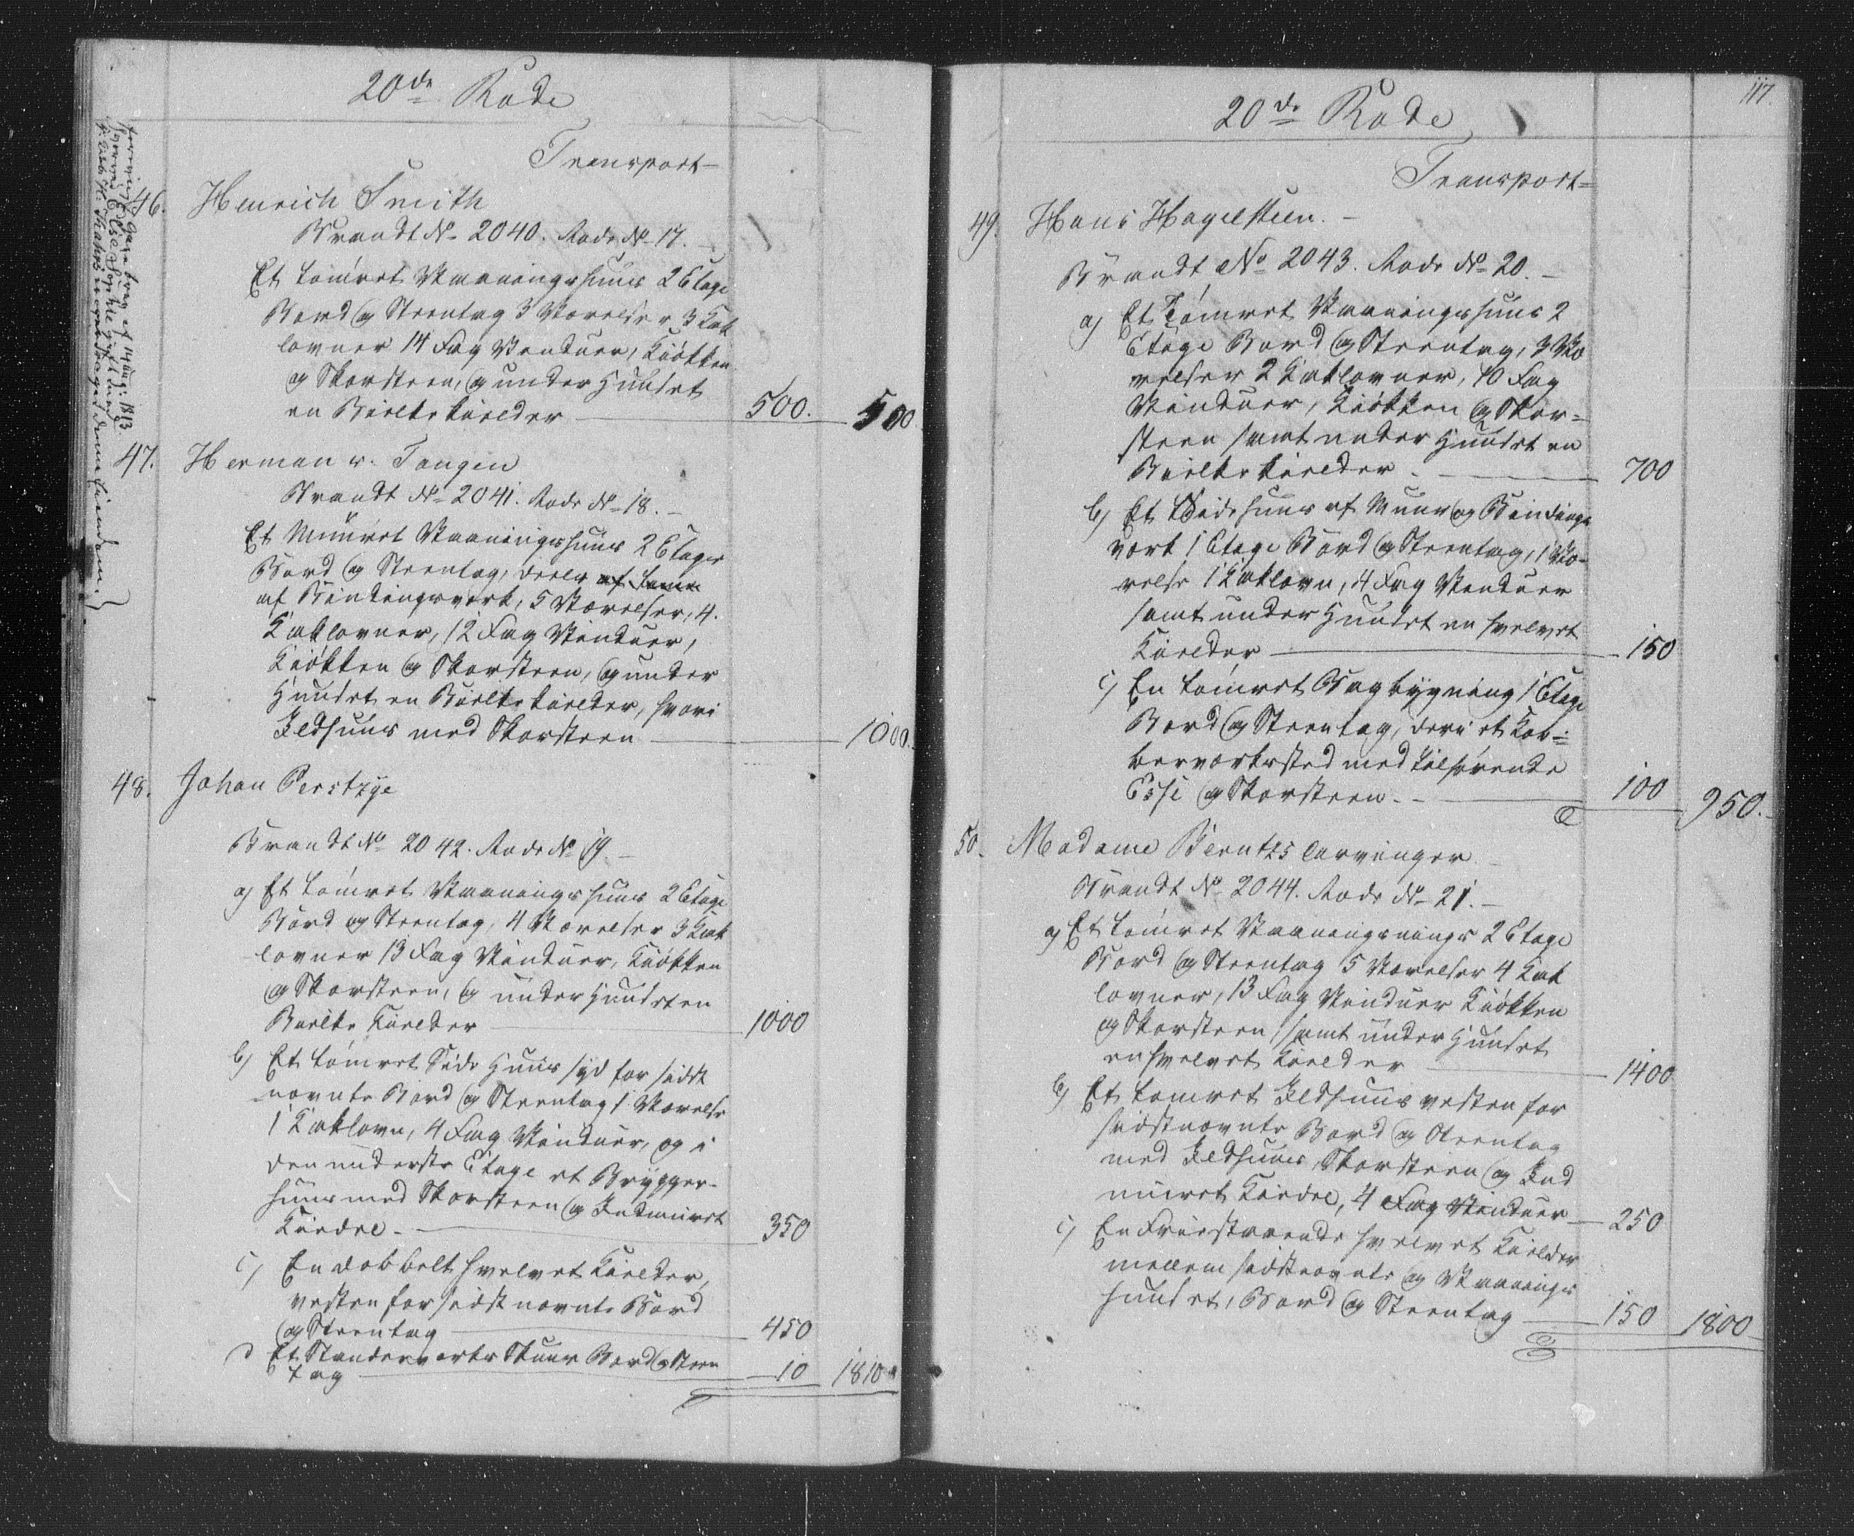 20de Rode
Transport
46. Henrich Smith
Brandt No 2040. Rode No 17.
Et tömret Vaaningshuus 2 Etage
Bord og Steentag 3 Værelser 3 Kak
lovner 14 Fag Vinduer, Kiökken
og Skorsteen, og under Huuset
en Bielke kielder 500. 500
47. Herman v. Tangen
Brandt No 2041. Rode No 18.
Et Muuret Vaaningshuus 2 Etager
Bord og Steentag, deels af tømr
af Bindingsverk, 5 Værelser, 4.
Kaklovner, 12 Fag Vinduer,
Kiökken og Skorsteen, og under
Huuset en Bielke kielder, hvori
Ildhuus med Skorsteen 1000.
48. Johan
Brandt No 2042. Rode No 19
a) Et tömret Vaaningshuus 2 Etage
Bord og Steentag, 4 Værelser 3 Kak
lovner 13 Fag Vinduer, Kiökken
og Skorsteen, og under Huuset en
Bielke Kielder 1000
b) Et tömret Side Huus syd for sidst
nævnte Bord og Steentag 1 Værelse
1 Kaklovn, 4 Fag Vinduer, og i
den underste Etage et Brygger-
huus med Skorsteen og Indmuret
Kiedel 350
c) En dobbelt hvelvet Kielder,
vesten for sidstnævnte Bord
og Steentag 450
d Et Standerverks Skuur Bord og Steen
tag 10 1810
117.
20de Rode
Transport
49. Hans Hagelsteen.
Brandt No 2043. Rode No 20.
a) Et Tömret Vaaningshuus 2
Etage Bord og Steentag, 3 Væ
relser 2 Kaklovner, 10 Fag
Vinduer, Kiökken og Skor-
steen samt under Huuset en
Bielke kielder 700
b) Et Sidehuus af Muur og Bindings
værk 1 Etage Bord og Steentag, 1 Væ-
relse 1 Kaklovn, 4 Fag Vinduer
samt under Huuset en hvelvet
Kielder 150
c) En tömret Bagbygning 1 Etage
Bord og Steentag, deri et Kob-
berverksted med tilhørende
Esse og Skorsteen. 100 950.
50. Madame Berntzs arvinger
Brandt No 2044. Rode No 21.
a) Et tömret Vaaningsnings 2 Etage
Bord og Steentag 5 Værelser 4 Kak
lovner, 13 Fag Vinduer Kiökken
og Skorsteen, samt under Huuset
en hvelvet kielder 1400
b) Et tømret Ildhuus vesten for
sidstnævnte Bord og Steentag
med Ildhuus, Skorsteen og Ind
muret Kiedel, 4 Fag Vinduer 250
c) En Friestaaende hvelvet Kielder
mellem sidstnævnte og Vaanings
huuset, Bord og Steentag 150 1800